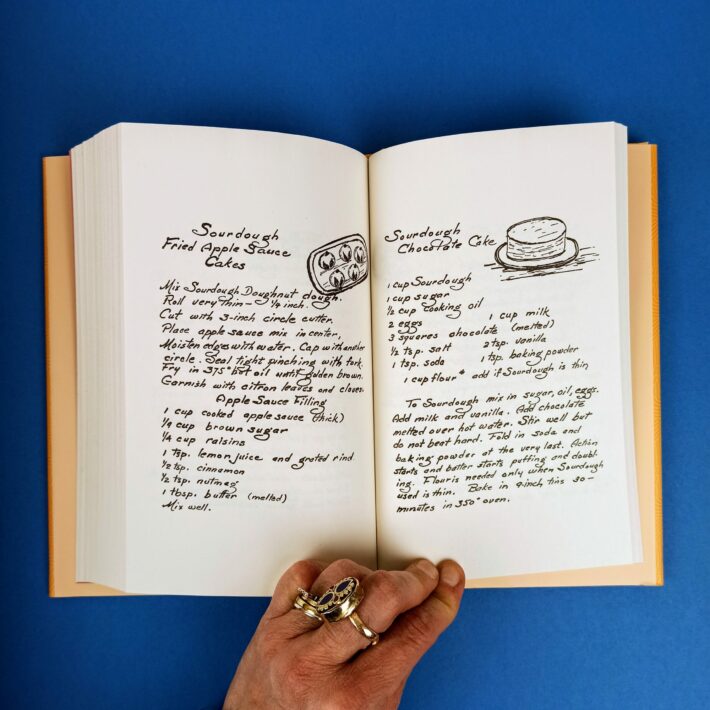 Sourdough
Fried Apple Sauce
Cakes
Mix Sourdough Doughnut dough.
Roll very thin - 1/4 inch.
Cut with 3-inch circle cutter.
Place apple sauce mix in center,
Moisten edges with water. Cap with another
circle. Seal tight pinching with fork.
Fry in 375° hot oil until golden brown.
Garnish with citron leaves and cloves.
Apple Sauce Filling
1 cup cooked apple sauce (thick)
cup brown sugar
1/4 cup raisins
1 tsp. lemon juice and grated rind
1/2 tsp. cinnamon
1/2 tsp. nutmeg
1 tbsp. butter (melted)
Mix well.
Sourdough
Chocolate Cake
1 cup Sourdough
1 cup sugar
1/2 cup cooking oil
2 eggs 1 cup milk
3 squares chocolate (melted)
1/2 tsp. salt 2 tsp. vanilla
1 tsp. soda 1 tsp. baking powder
1 cup flour* add if Sourdough is thin
To Sourdough mix in sugar, oil, eggs.
Add milk and vanilla. Add chocolate
melted over hot water. Stir well but
do not beat hard. Fold in soda and
baking powder at the very last. Action
starts and batter starts puffing and doubl-
ing. Flour is needed only when Sourdough
used is thin. Bake in 9-inch tins 30-
minutes in 350° oven.